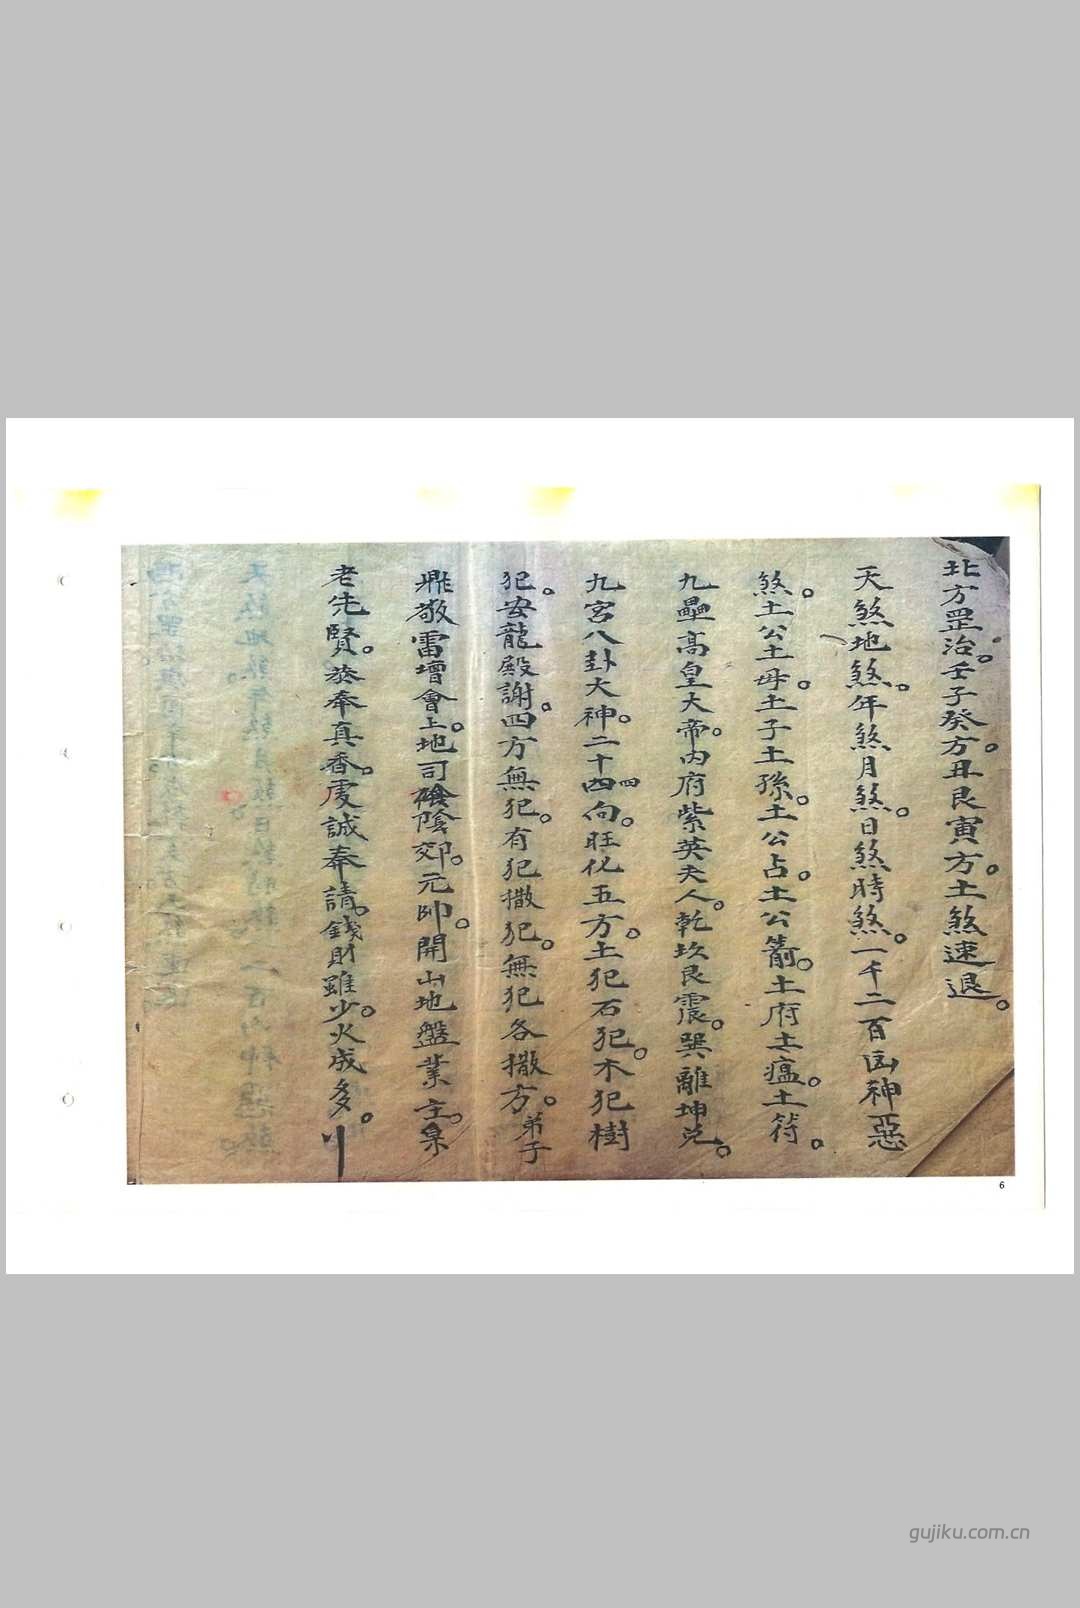 北方罡治。壬子癸方。丑艮寅方。土煞速退。
天煞地煞。年煞月煞。日煞時煞。一千二百凶神惡
煞。土公土母。土子土孫。土公占。土公箭。土府土瘟。土符。
九壘髙皇大帝。内府紫英夫人。乾坎艮震。巽離坤兑。
九宮八卦大神。二十四向。旺化五方。土犯石犯。木犯樹
犯。安龍殿謝。四方無犯。有犯撒犯。無犯各撒方。弟子
鼎敬雷壇會上。地司陰郊。元帥。開山地盤業主。
老先賢。恭奉真香。虔誠奉請。錢財雖少。火成多。
6
gujiku.com.cn